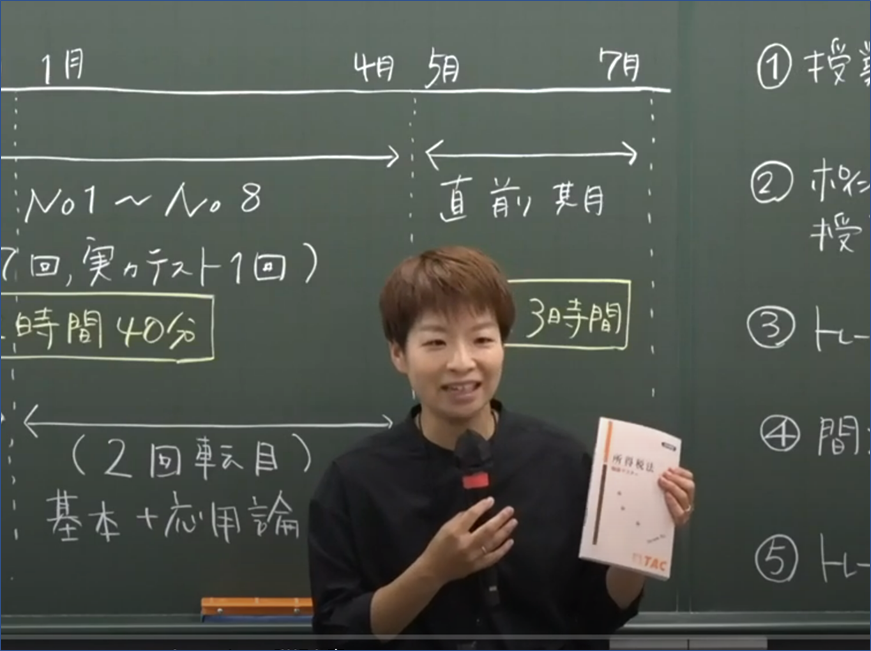 1月 4月 5月 7月
No1～No8
直前期
7回,実力テスト1回)
時間40分
3時間
(2回転目)
基本+応用論
① 授業
②
授
③ トレー
④ 間
⑤ トレ
所得税法
TAC